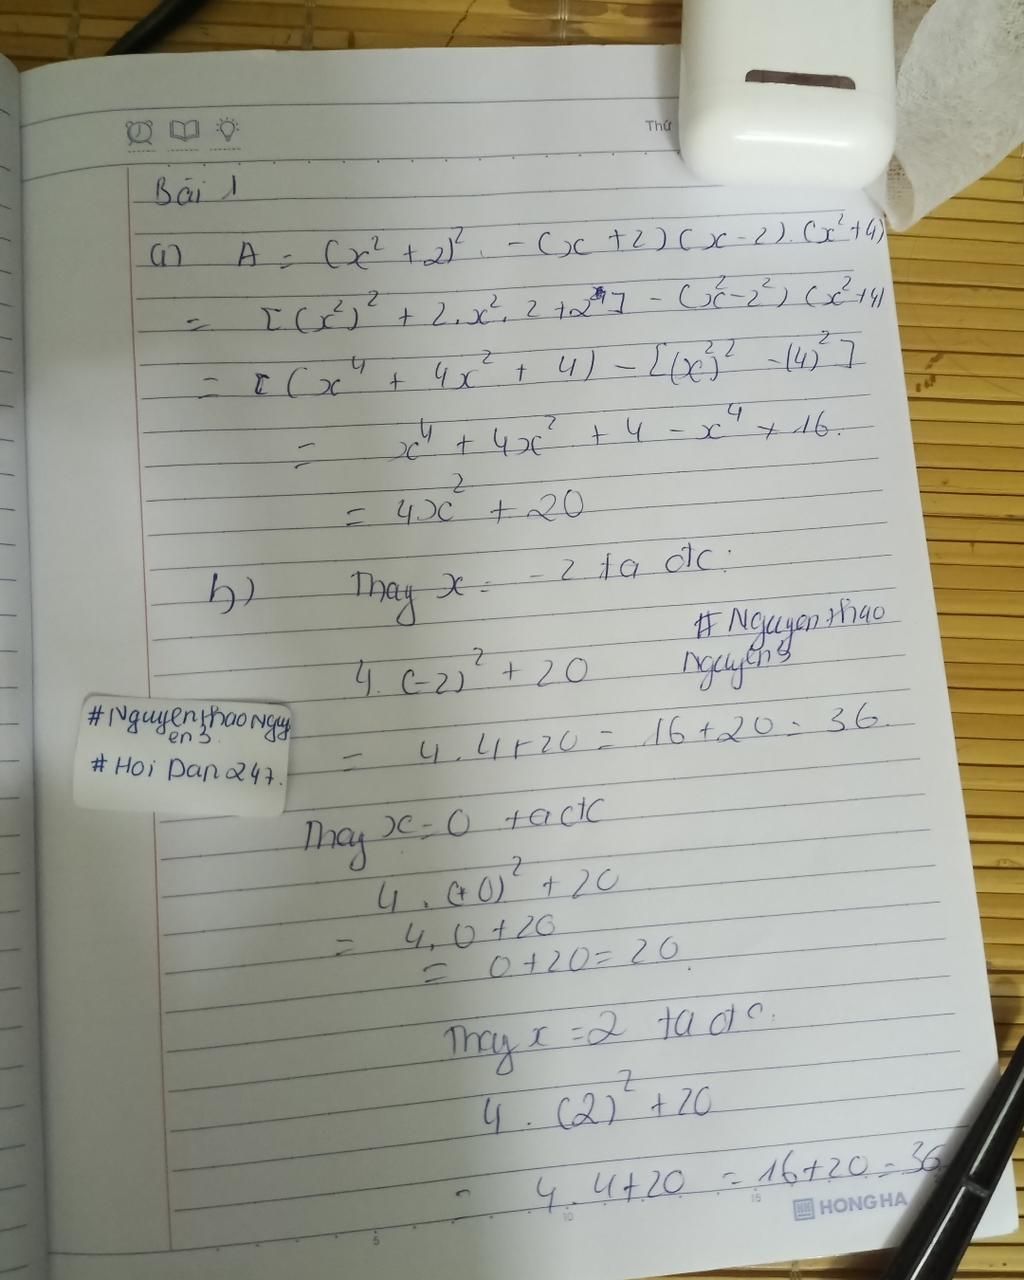 Thứ
Bài 1
a) A = (x² + 2)² - (x + 2)(x - 2).(x² + 4)
= [(x²)² + 2.x².2 + 2²] - (x² - 2²)(x² + 4)
= [(x⁴ + 4x² + 4) - [(x²)² - (4)²]
= x⁴ + 4x² + 4 - x⁴ + 16.
= 4x² + 20
b) Thay x = -2 ta đc:
# Nguyenthao
nguyen3
4. (-2)² + 20
#NguyenthaoNguy
en3.
# Hoi Dap 247.
= 4.4+20 = 16+20 = 36.
Thay x=0 ta đc
4. (+0)² + 20
= 4.0+20
= 0+20=20.
Thay x=2 ta đc:
4. (2)² + 20
= 4.4+20 = 16+20=36
HONG HA
5 10 15